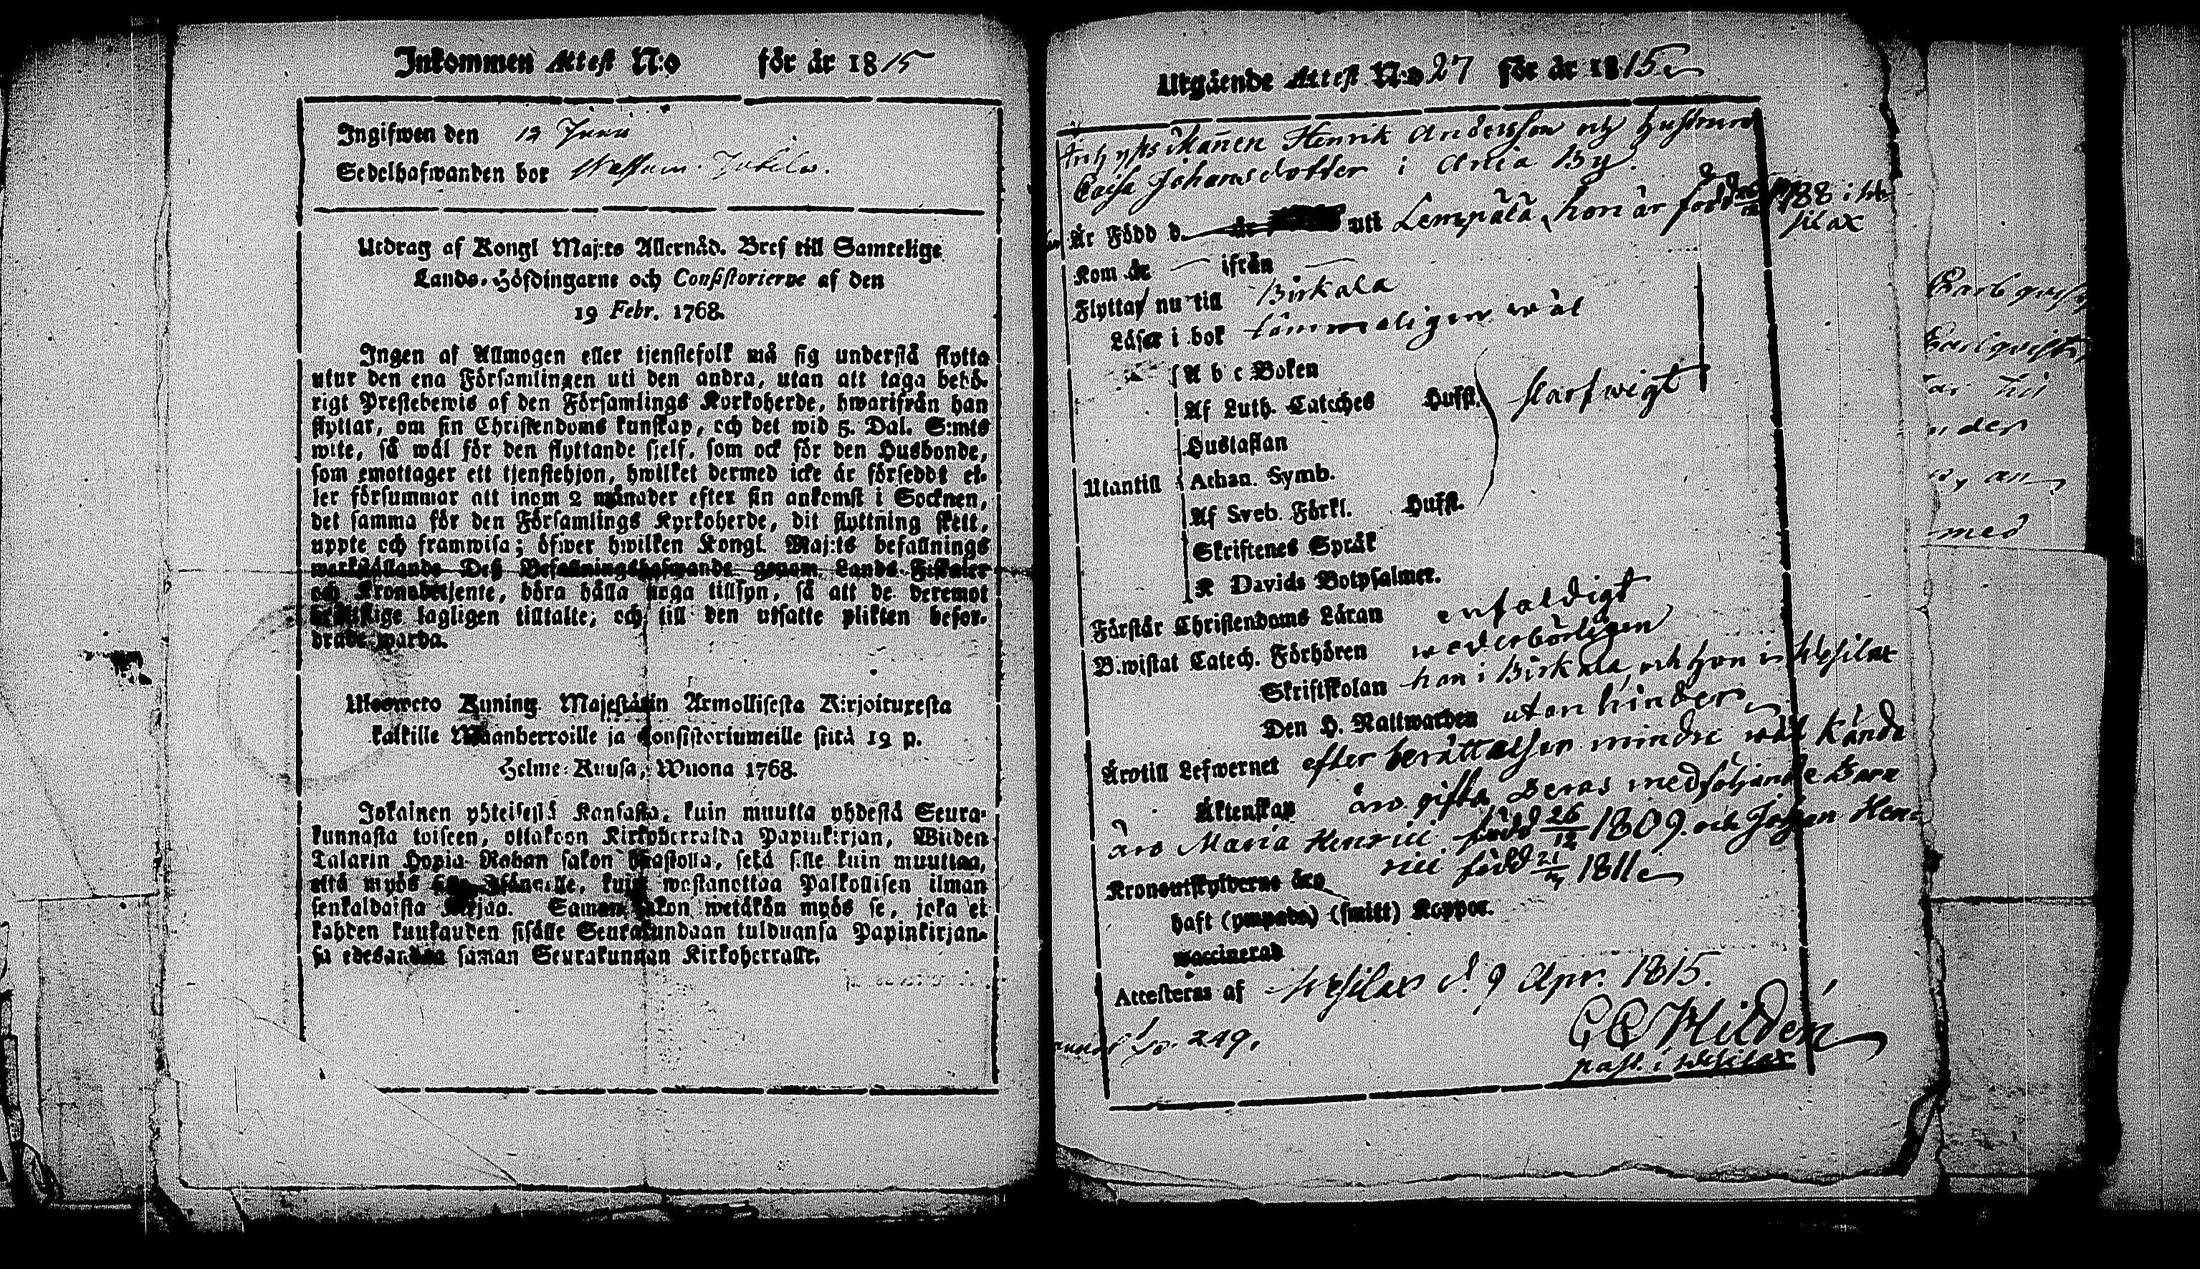 Inkommen Attest N:o för år 1815
Ingifwen den 13 Junii
Sedelhafwanden bor
Utdrag af Kongl Maj:ts Allernåd. Bref till Samtelige
Lands-Höfdingarne och Consistorierne af den
19 Febr. 1768.
Ingen af Allmogen eller tjenstefolk må sig understå flytta
utur den ena Församlingen uti den andra, utan att taga behö-
rigt Prestebewis af den Församlings Kyrkoherde, hwarifrån han
flyttar, om sin Christendoms kunskap, och det wid 5. Dal. S:mts
wite, så wäl för den flyttande sielf, som ock för den Husbonde,
som emottager ett tjenstehjon, hwilket dermed icke är förseddt el-
ler försummar att inom 2 månader efter sin ankomst i Socknen,
det samma för den Församlings Kyrkoherde, dit flyttning skett,
uppte och framwisa; öfwer hwilken Kongl. Maj:ts befallnings
werkställande Deß Befallningshafwande genom Lands-Fiskaler
och Kronobetjente, böra hålla noga tillsyn, så att de deremot
brottslige lagligen tilltalte; och till den utsatte plikten befor-
drade warda.
Uloswero Kuning. Majestätin Armollisesta Kirjoituxesta
kaikille Maanherroille ja Consistoriumeille siitä 19 p.
Helme-Kuusa, Wuona 1768.
Jokainen yhteisestä Kansasta, kuin muutta yhdestä Seura-
kunnasta toiseen, ottakoon Kirkoherralda Papinkirjan, Wiiden
Talarin Hopia-Rahan sakon haastolla, sekä sille kuin muuttaa,
että myös sille Isännälle, kuin wastanottaa Palkollisen ilman
senkaldaista kirjaa. Saman sakon wetäkän myös se, joka ei
kahden kuukauden sisälle Seurakundaan tulduansa Papinkirjan-
sa edesanna saman Seurakunnan Kirkoherralle.
Utgående Attest N:o 27 för år 1815
Mannen Henrik Andersson och Hustrun
Caisa Johansdotter i Ania By.
Är Född d. år uti Lempälä, hon är född 1788 i We-
silax
Kom år — ifrån —
Flyttar nu till Birkala
Läser i bok tämmeligen wäl
A b c Boken
Af Luth. Cateches Husfl. slarfwigt
Hustaflan
Utantill Athan. Symb.
Af Sveb. Förkl. Husfl.
Skriftenes Språk
K Davids Botpsalmer.
Förstår Christendoms Läran enfaldigt
Biwistat Catech. Förhören wederbörligen
Skriftskolan han i Birkala och hon i Wesilax
Den H. Nattwarden utan hinder
Ärotill Lefwernet efter berättelsen mindre wäl kända
Äktenskap äro gifta Deras medföljande Barn
äro Maria Henrici född 26/12 1809. och Johan Hen-
rici född 1811
Kronoutskylderne äro
haft (ympade) (smitt) Koppor.
waccinerad
Attesteras af Wesilax d. 9 Apr. 1815.
C C Hildén
past. i Wesilax
249.
Carlqvist
der
an
med